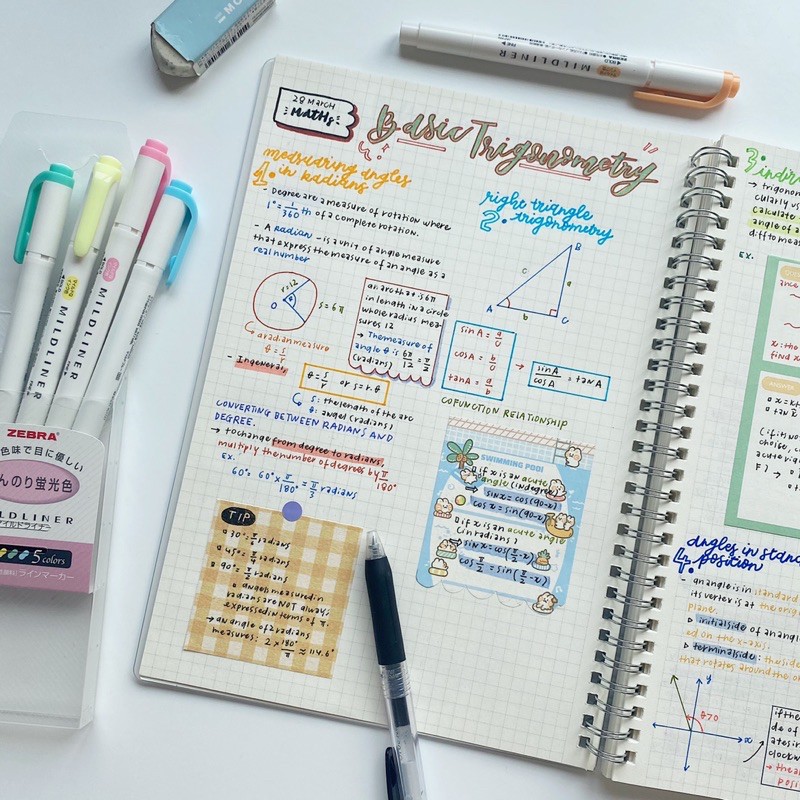 28 March
MATHs
Basic Trigonometry
1. measuring angles
in radians
- Degree are a measure of rotation where
1° = 1/360 th of a complete rotation.
- A RADIAN - is a unit of angle measure
that express the measure of an angle as a
real number
r = 12
θ
O
S = 6π
a radian measure
θ = s/r
an arc that is 6π
in length in a circle
whose radius mea-
sures 12
→ The measure of
angle θ is 6π/12 = π/2
(radians)
- In general,
θ = s/r or s = r·θ
s: the length of the arc
θ: angel (radians)
CONVERTING BETWEEN RADIANS AND
DEGREE.
→ to change from degree to radians,
multiply the number of degrees by π/180°
EX.
60° = 60° × π/180° = π/3 radians
TIP
30° = π/6 radians
45° = π/4 radians
90° = π/2 radians
angel measured in
radians are NOT always
expressed in terms of π.
→ an angle of 2 radians
measures: 2 × 180°/π ≈ 114.6°
right triangle
2. trigonometry
B
c
a
A
b
C
sin A = a/c
cos A = b/c
tan A = a/b
→ sin A / cos A = tan A
COFUNCTION RELATIONSHIP
SWIMMING POOL
if x is an acute
angle (in degree)
sin x = cos(90-x)
cos x = sin(90-x)
if x is an acute angle
(in radians)
sin x = cos(π/2 - x)
= sin(π/2 - x)
3.
→ trigono
cularly v
calculate
angle of a
diff to meas
EX.
x: the
find x
ANSWER
4. angles in stand
position
- an angle is in standard
its vertex is at the orig
plane.
initial side of an angl
ed on the x-axis.
terminal side: the side
that rotates around the o
y
x
θ>0
if the
de of
ates in
clockw
MILDLINER
MILDLINER
MILDLINER
MILDLINER
ZEBRA
色味で目に優しい
んのり蛍光色
ILDLINER
5 colors
ラインマーカー